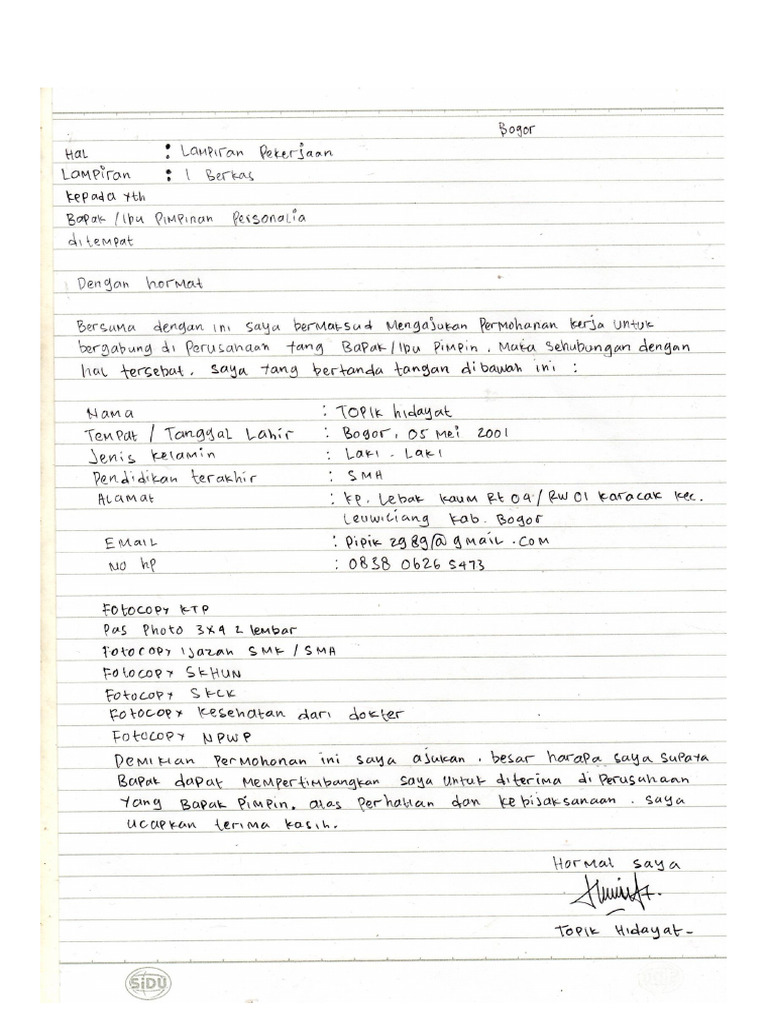 Bogor
Hal : Lampiran Pekerjaan
Lampiran : 1 Berkas
Kepada Yth
Bapak / Ibu Pimpinan Personalia
ditempat
Dengan hormat
Bersama dengan ini saya bermaksud Mengajukan Permohonan kerja untuk
bergabung di Perusahaan yang Bapak/Ibu Pimpin. Maka Sehubungan dengan
hal tersebut. saya yang bertanda tangan dibawah ini :
Nama : TOPIK hidayat
Tempat / Tanggal Lahir : Bogor, 05 Mei 2001
Jenis kelamin : Laki. Laki
Pendidikan terakhir : SMA
Alamat : Kp. Lebak kaum Rt 04 / RW 01 Karacak Kec.
Leuwiliang Kab. Bogor
EMail : Pipik2989@gmail.com
NO hp : 0838 0626 5473
Fotocopy KTP
Pas Photo 3x4 2 lembar
Fotocopy Ijazah SMK / SMA
Fotocopy SKHUN
Fotocopy SKCK
Fotocopy Kesehatan dari dokter
Fotocopy NPWP
Demikian Permohonan ini saya ajukan. besar harapa saya supaya
Bapak dapat mempertimbangkan saya untuk diterima di Perusahaan
Yang Bapak Pimpin. atas Perhatian dan kebijaksanaan. saya
ucapkan terima kasih.
Hormat saya
TOPIK Hidayat-
SiDU